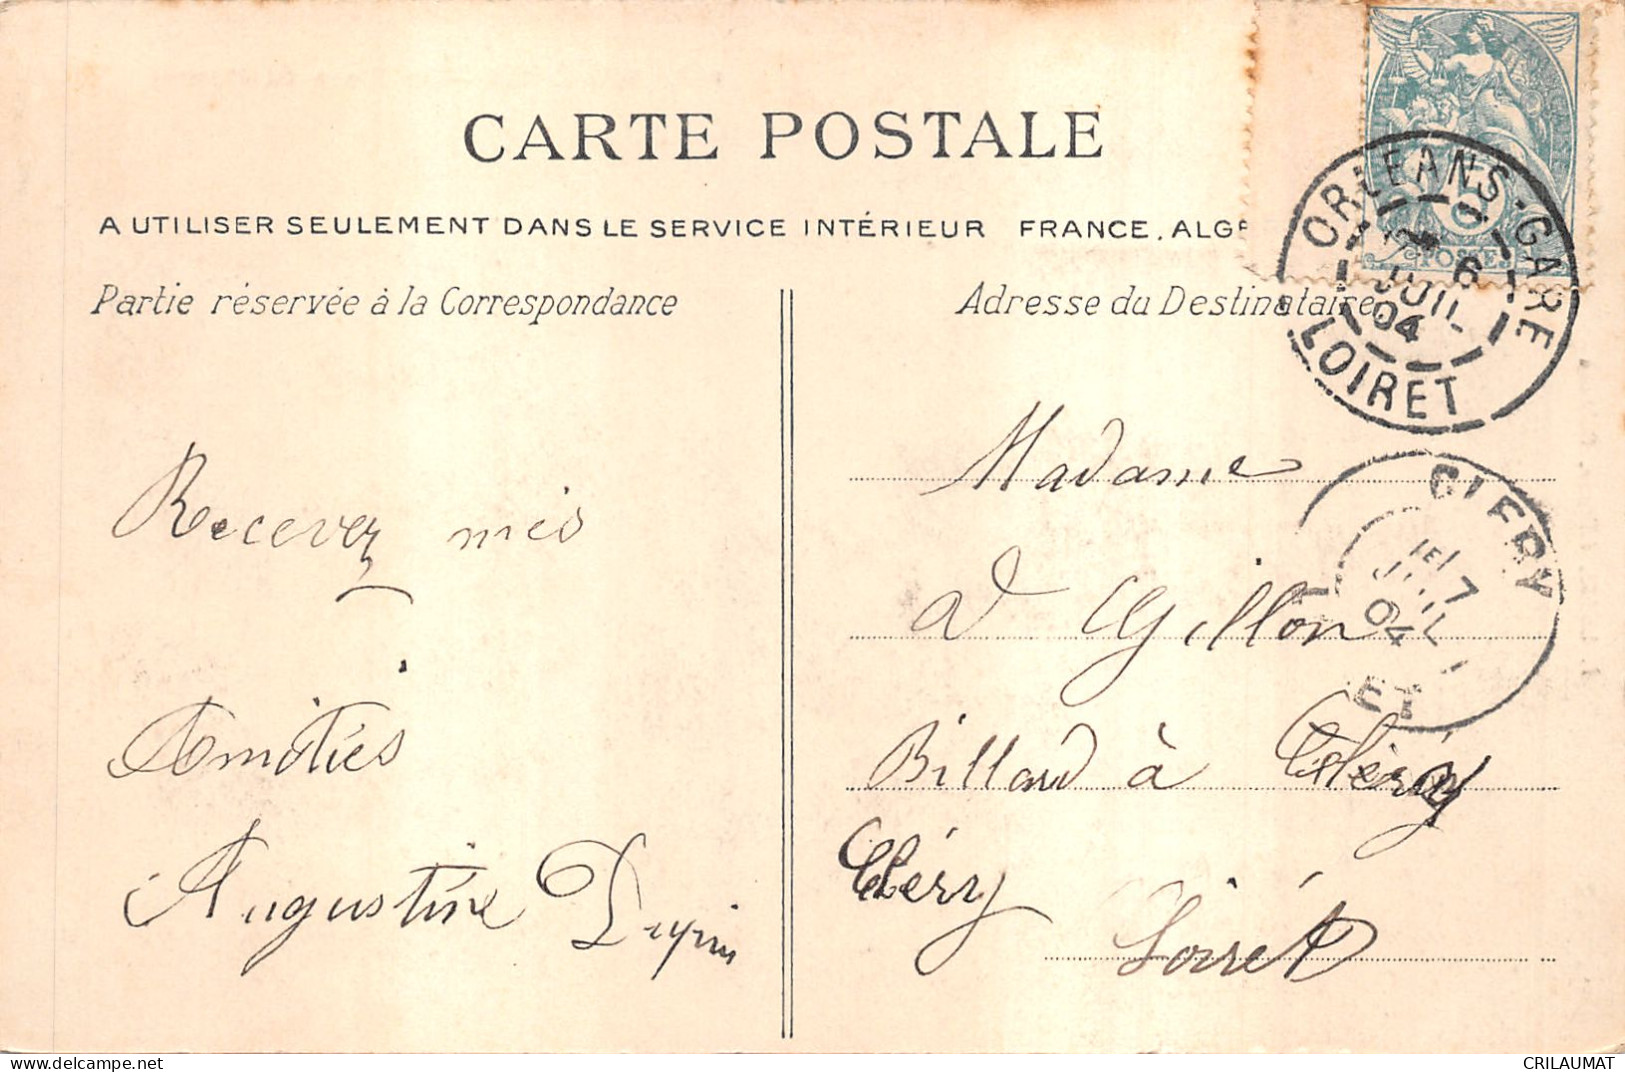 CARTE POSTALE
A UTILISER SEULEMENT DANS LE SERVICE INTÉRIEUR FRANCE, ALG
Partie réservée à la Correspondance
Adresse du Destinataire
ORLEANS-GARE
6
JUIL
04
LOIRET
5
POSTES
CLERY
7
JUIL
04
ET
Recevez mes
Amitiés
Augustine Dupin
Madame
Gillon
Billard à Cléry
Cléry
Loiret
CRILAUMAT